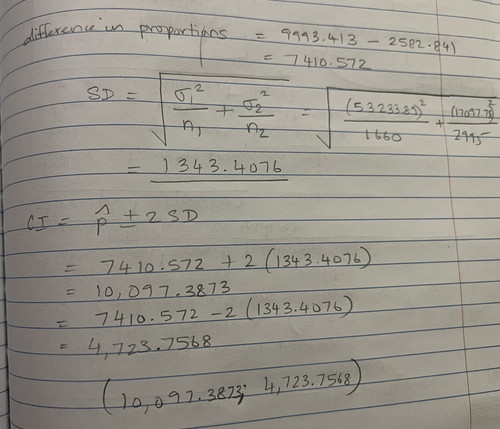 difference in proportions = 9993.413 - 2582.841
= 7410.572
SD = √(σ₁²/n₁ + σ₂²/n₂) = √((53233.89)²/1660 + (17097.78)²/2995)
= 1343.4076
CI = p̂ ± 2 SD
= 7410.572 + 2 (1343.4076)
= 10,097.3873
= 7410.572 - 2 (1343.4076)
= 4,723.7568
(10,097.3873; 4,723.7568)